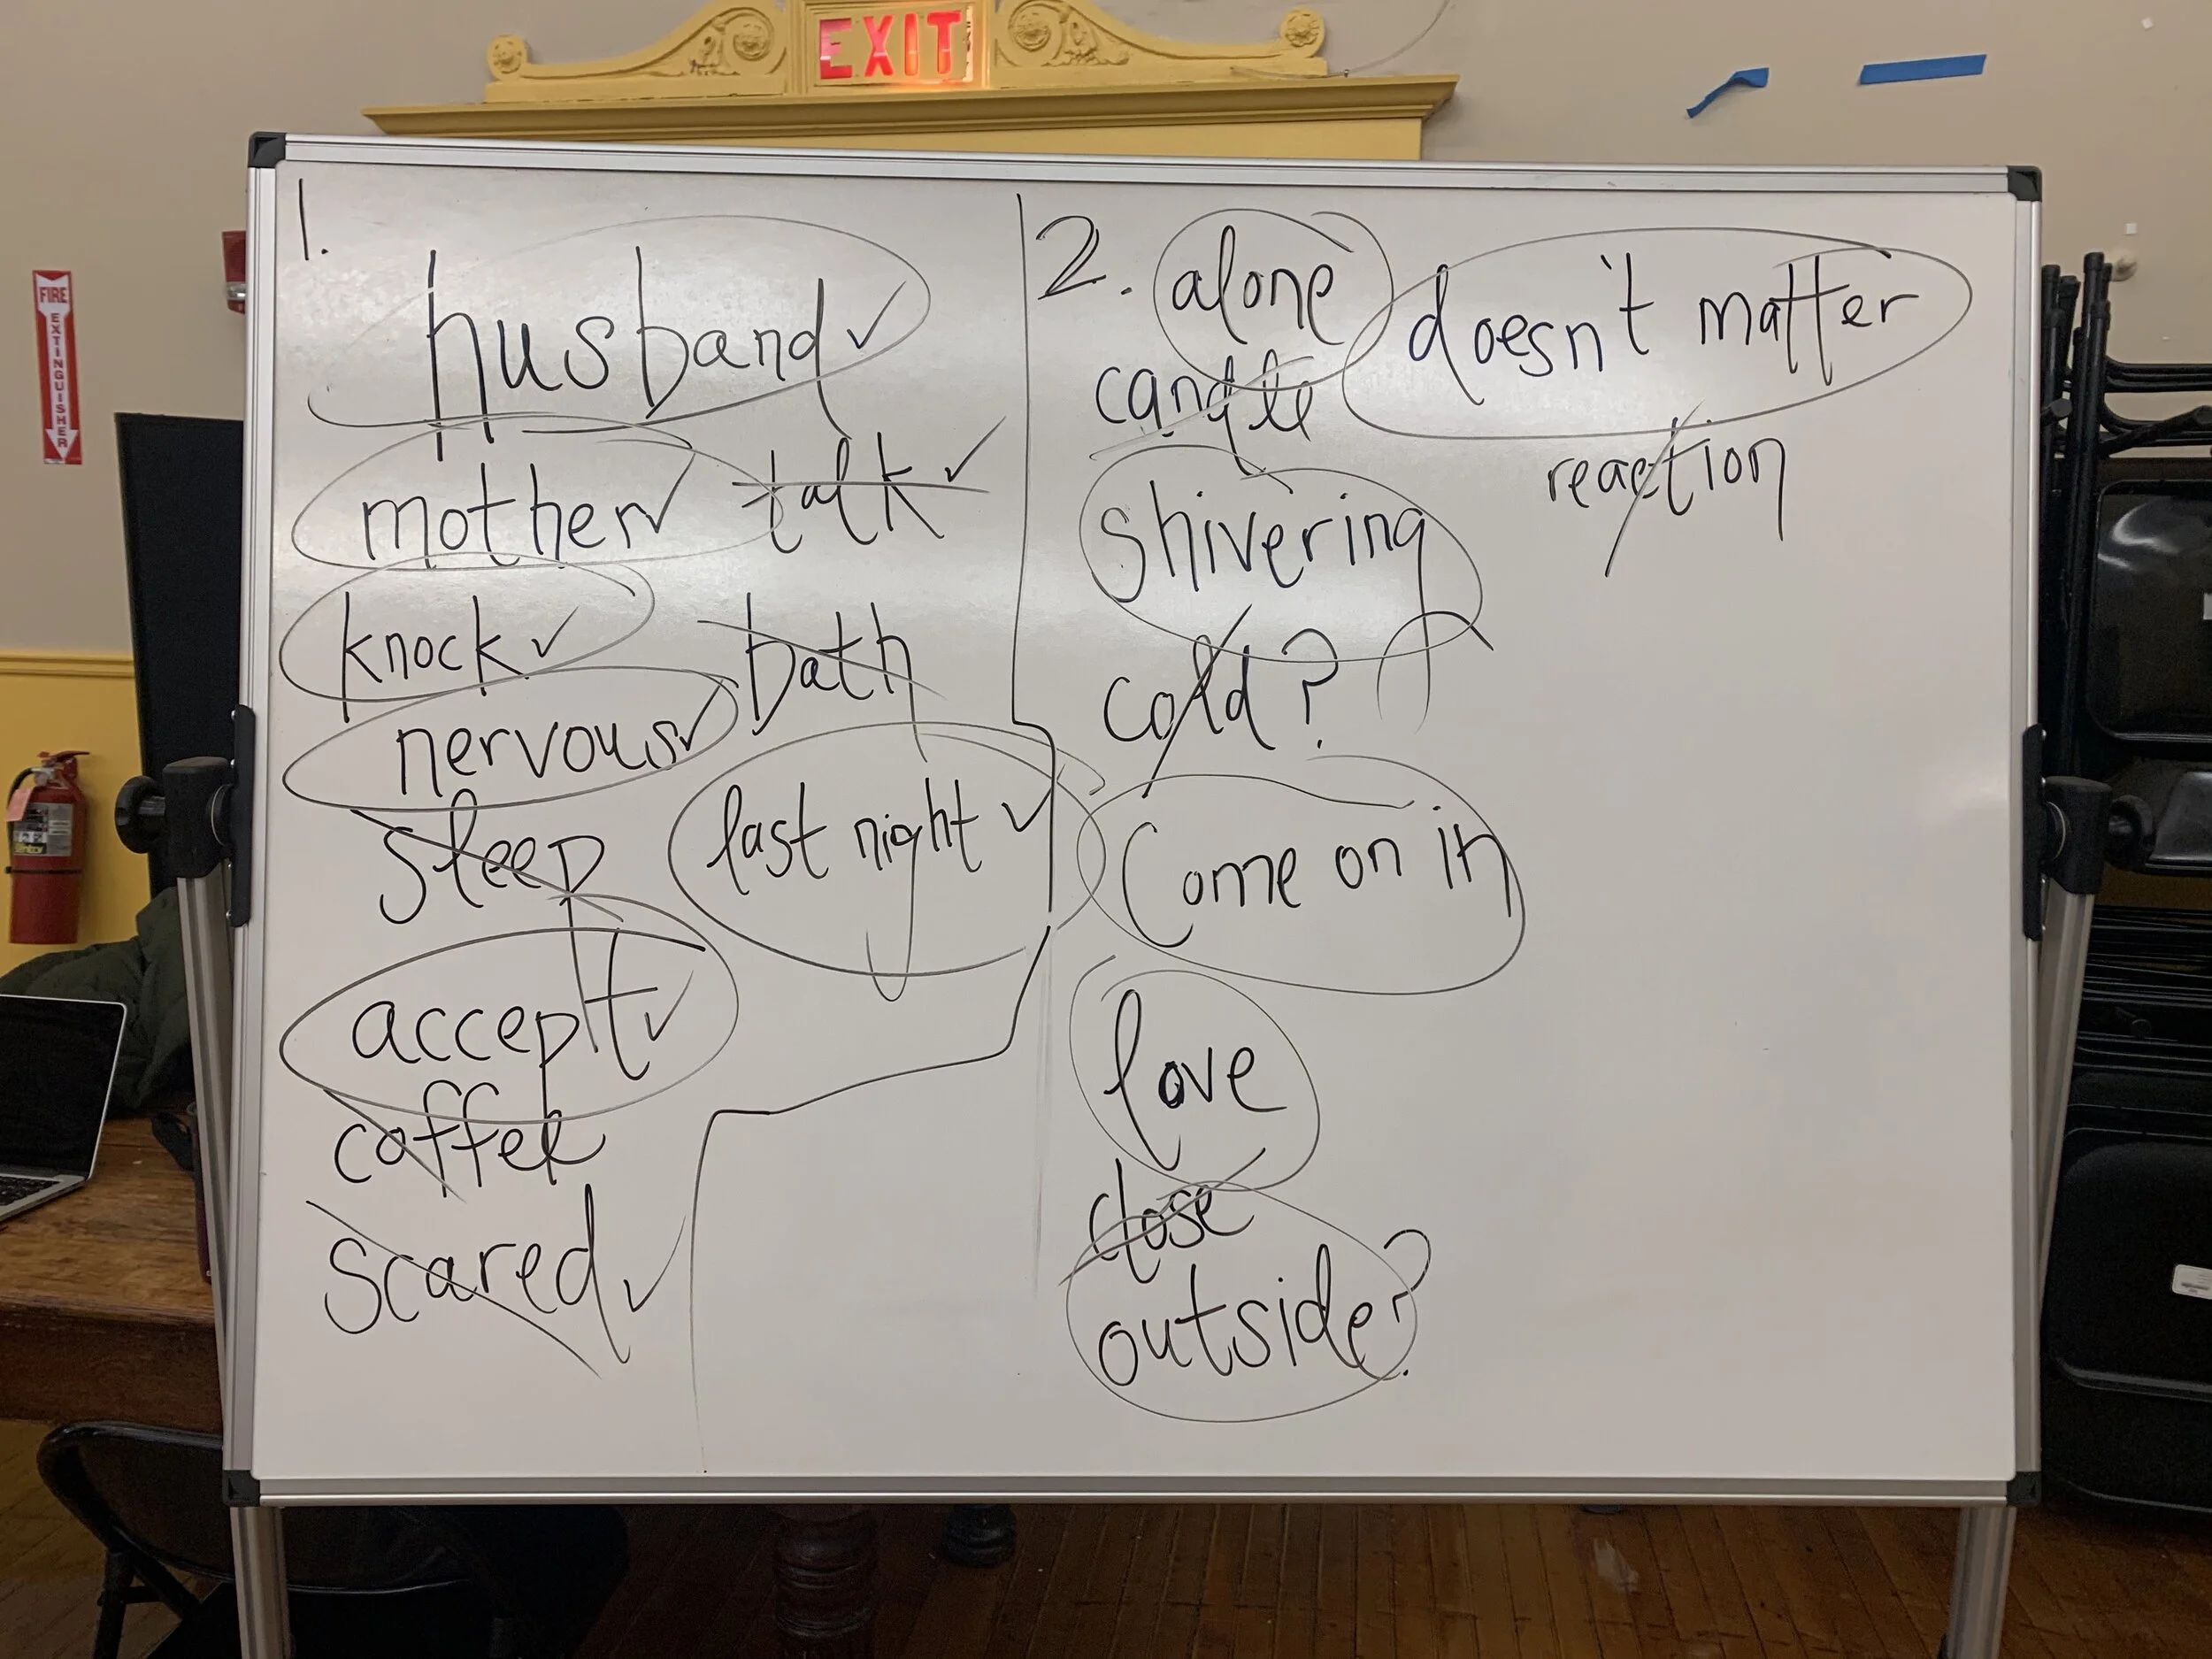 EXIT
FIRE
EXTINGUISHER
1.
husband ✓
mother ✓ talk ✓
knock ✓ bath
nervous ✓
sleep last night ✓
accept ✓
coffee
scared ✓
2. alone doesn't matter
candle reaction
shivering
cold?
Come on in
love
close
outside?